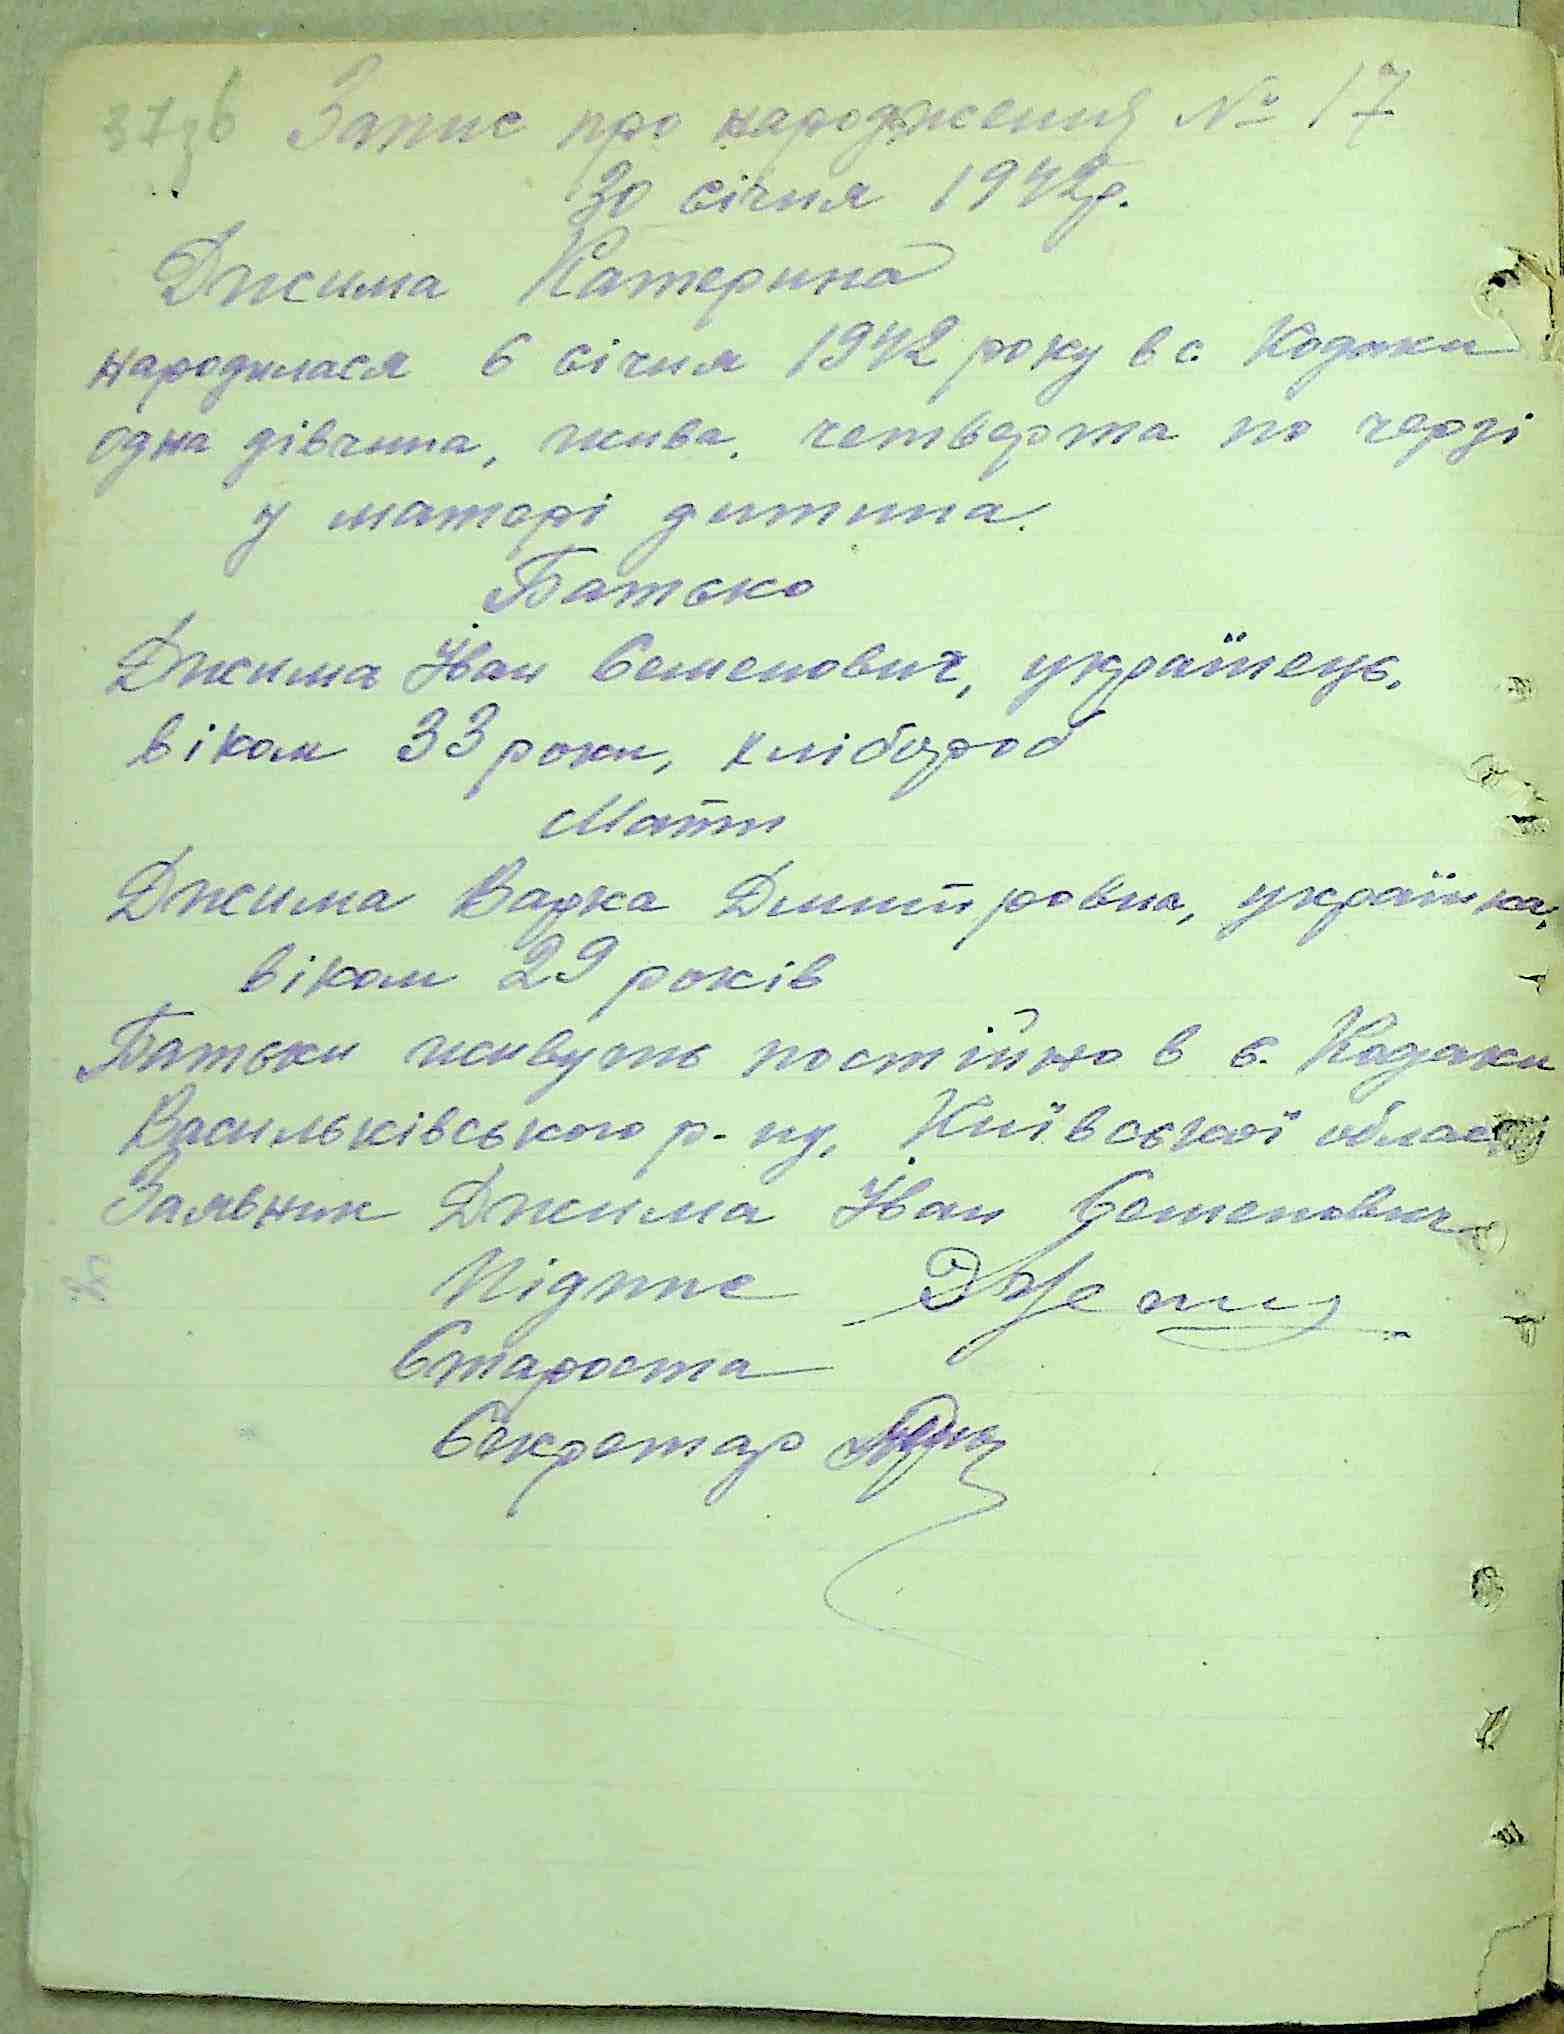 37зв Запис про народження № 17
30 січня 1942р.
Джима Катерина
народилася 6 січня 1942 року в с. Кодаки
одна дівчина, жива, четверта по черзі
у матері дитина.
Батько
Джима Іван Семенович, українець,
віком 33 роки, хлібороб
Мати
Джима Варка Дмитровна, українка,
віком 29 років
Батьки живуть постійно в с. Кодаки
Васильківського р-ну, Київської області
Заявник Джима Іван Семенович
Підпис
Староста
Секретар